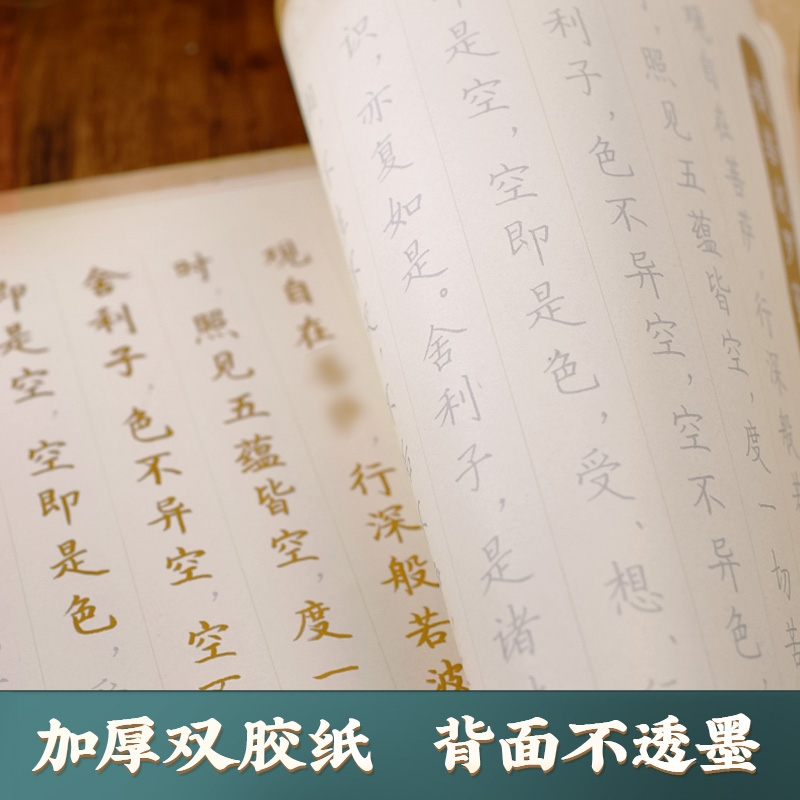 观自在菩萨，行深般
，照见五蕴皆空，度一切苦
利子，色不异空，空不异色
是空，空即是色，受、想、
识，亦复如是。舍利子，是诸
观自在，行深般若波
时，照见五蕴皆空，度一
舍利子，色不异空，空不
即是空，空即是色，
加厚双胶纸 背面不透墨